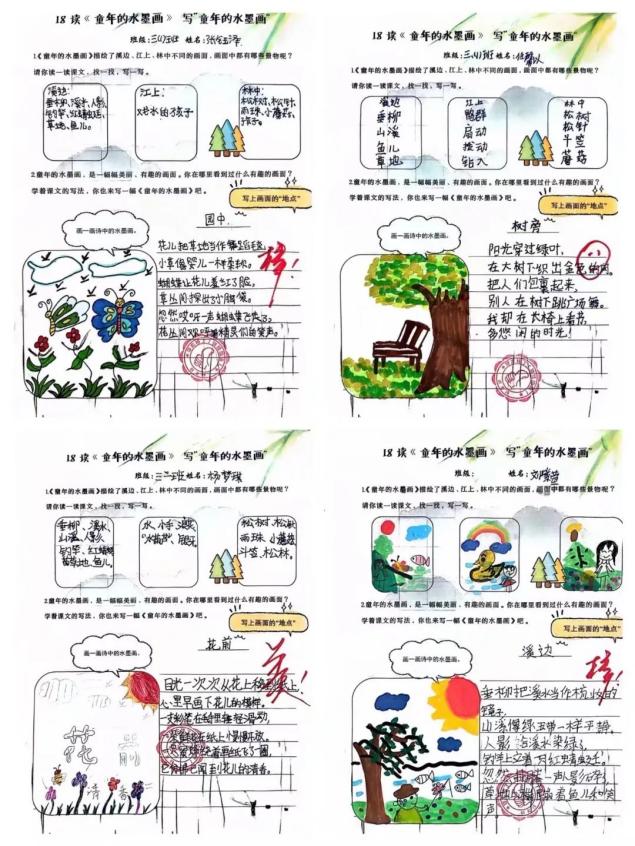 18 读《童年的水墨画》 写"童年的水墨画"
班级:三(4)班 姓名:
1《童年的水墨画》描绘了溪边、江上、林中不同的画面,画面中都有哪些景物呢?
请你读一读课文,找一找,写一写。
溪边:
垂柳、溪水、人影、
钓竿、红蜻蜓、
草地、鱼儿。
江上:
戏水的孩子
林中:
松树、松针、
雨珠、小蘑菇、
孩子。
2童年的水墨画,是一幅幅美丽、有趣的画面。你在哪里看到过什么有趣的画面?
学着课文的写法,你也来写一幅《童年的水墨画》吧。
写上画面的"地点"
画一画诗中的水墨画。
园中
花儿把草地当作舞蹈毯,
小草像婴儿一样柔软。
蝴蝶让花儿羞红了脸,
草丛间探出了小脚袋。
忽然哎呀一声蝴蝶飞走了,
花丛间
棒!
18 读《童年的水墨画》 写"童年的水墨画"
班级:三(4)班 姓名:
1《童年的水墨画》描绘了溪边、江上、林中不同的画面,画面中都有哪些景物呢?
请你读一读课文,找一找,写一写。
溪边
垂柳
山溪
鱼儿
草地
江上
鸭群
扇动
拨动
钻入
林中
松树
松针
斗笠
蘑菇
2童年的水墨画,是一幅幅美丽、有趣的画面。你在哪里看到过什么有趣的画面?
学着课文的写法,你也来写一幅《童年的水墨画》吧。
写上画面的"地点"
画一画诗中的水墨画。
树旁
阳光穿过绿叶,
在大树下织出金色的网。
把人们包裹起来,
别人在树下跳广场舞。
我却在长椅上看书,
多悠闲的时光!
18 读《童年的水墨画》 写"童年的水墨画"
班级:三二班 姓名:杨梦琪
1《童年的水墨画》描绘了溪边、江上、林中不同的画面,画面中都有哪些景物呢?
请你读一读课文,找一找,写一写。
垂柳、溪水、
山溪、人影、
钓竿、红蜻蜓
草地、鱼儿。
水、小手、浪花
松树、松针
雨珠、小蘑菇、
斗笠、松林。
2童年的水墨画,是一幅幅美丽、有趣的画面。你在哪里看到过什么有趣的画面?
学着课文的写法,你也来写一幅《童年的水墨画》吧。
写上画面的"地点"
画一画诗中的水墨画。
花
花前
目光一次次从花上移到纸上,
心里早画下花儿的模样。
一支铅笔在白纸上轻轻滑动,
一朵鲜花在纸上慢慢开放。
一只蜜蜂绕着画纸飞了一圈,
它仿佛已闻到花儿的清香。
美!
18 读《童年的水墨画》 写"童年的水墨画"
班级: 姓名:
1《童年的水墨画》描绘了溪边、江上、林中不同的画面,画面中都有哪些景物呢?
请你读一读课文,找一找,写一写。
2童年的水墨画,是一幅幅美丽、有趣的画面。你在哪里看到过什么有趣的画面?
学着课文的写法,你也来写一幅《童年的水墨画》吧。
写上画面的"地点"
画一画诗中的水墨画。
溪边
垂柳把溪水当作梳妆的
镜子,
山溪像绿玉带一样平静。
人影给溪水染绿了,
钓竿上立着一只红蜻蜓。
忽然扑腾一声人影碎了,
草地上
声
棒!